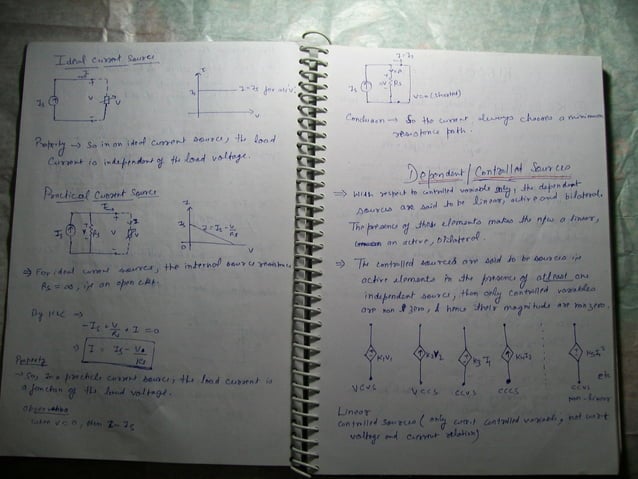 Ideal Current Source
I
Is
V
I
Is
I = Is for all V.
V
Property → So in an ideal current source, the load
current is independent of the load voltage.
Practical Current Source
Is
Rs
V
I
Is
I = Is - V/Rs
0
V
⇒ For ideal current source, the internal source resistance
Rs = ∞, i.e. an open ckt.
By KCL →
-Is + V/Rs + I = 0
⇒ I = Is - V/Rs
Property
→ So, In a practical current source, the load current is
a function of the load voltage.
observation
when V = 0, then I = Is
I = Is
Is
Rs
V=0 (shorted)
Conclusion → So the current always chooses a minimum
resistance path.
Dependent / Controlled Sources
⇒ With respect to controlled variable only, the dependent
sources are said to be linear, active and bilateral.
The presence of these elements makes the n/w a linear,
an active, bilateral.
⇒ The controlled sources are said to be sources i.e
active elements in the presence of atleast one
independent source, then only controlled variables
are non zero, & hence their magnitude are non zero.
K1V1
K2V2
K3I1
K4I2
K5I1²
etc
VCVS
VCCS
CCVS
CCCS
CCVS
non-linear
Linear
controlled sources ( only w.r.t controlled variable, not w.r.t
voltage and current relation)